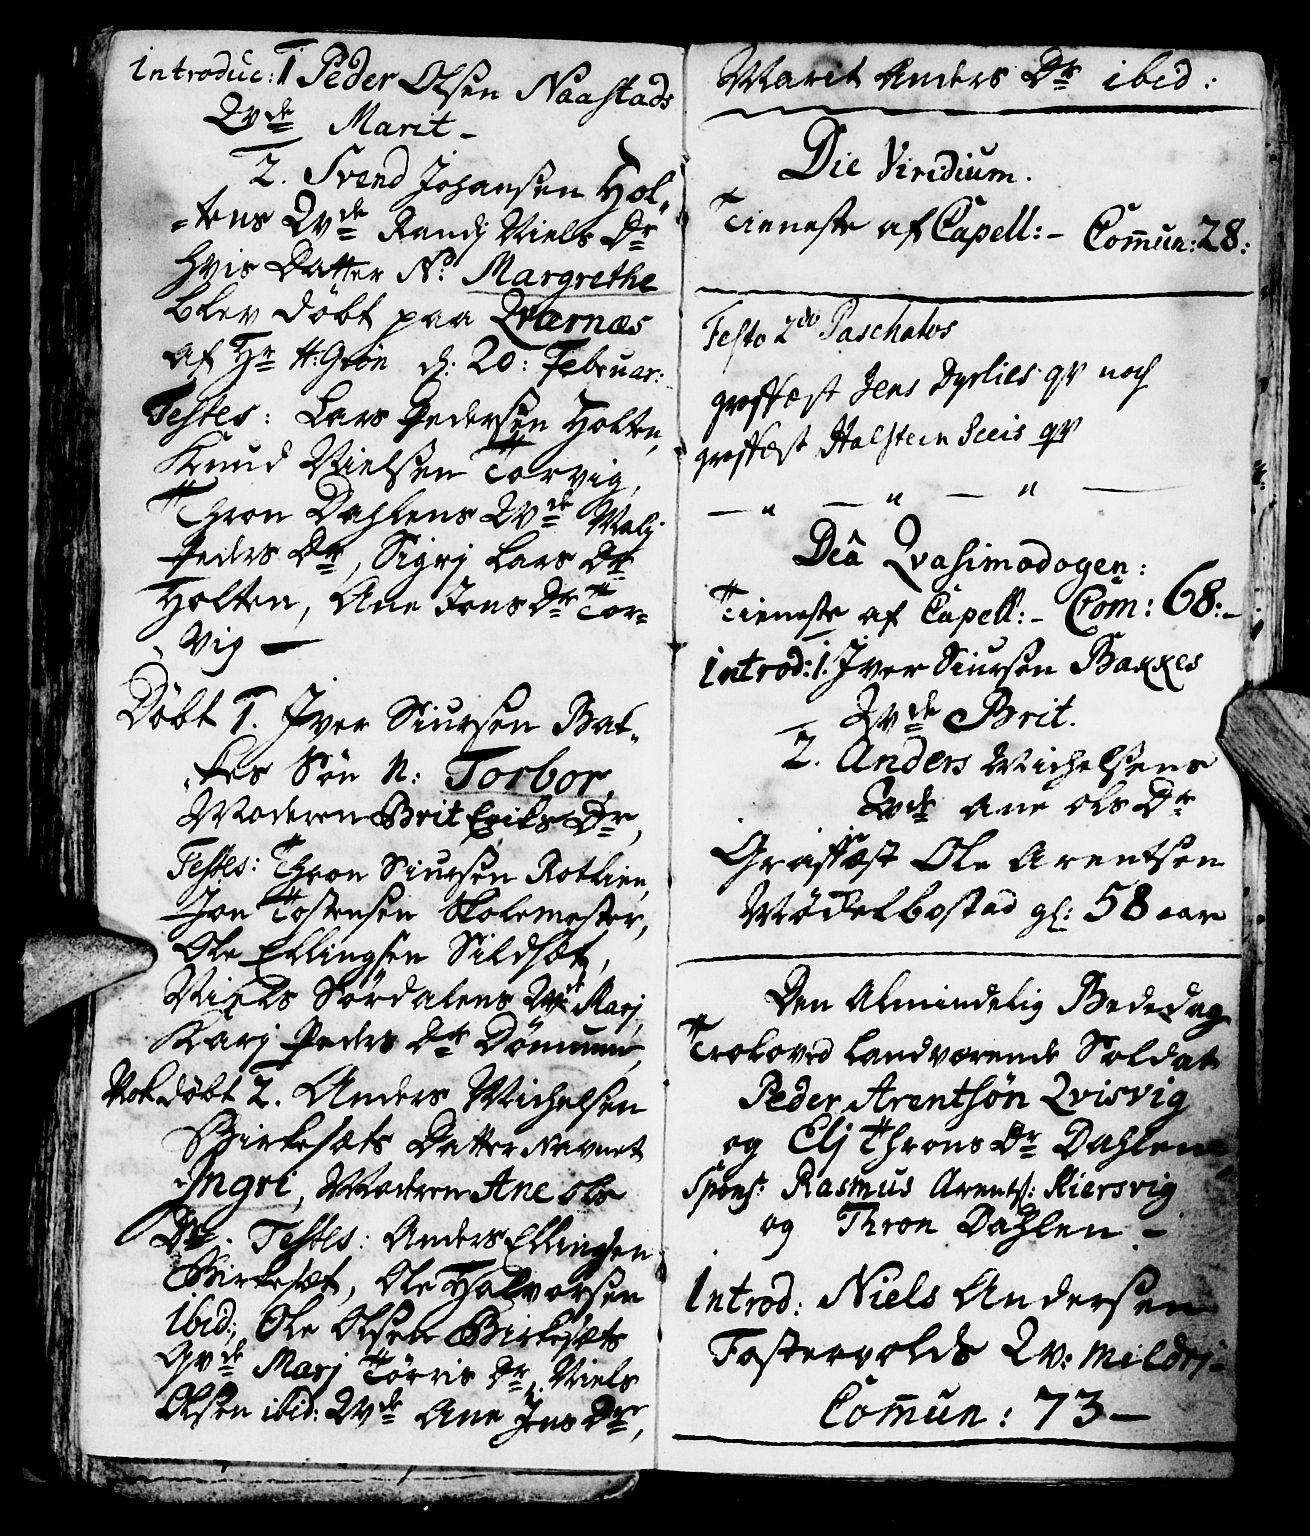 introduc: 1 Peder Olsen Naastads
Qvde Marit –
2. Svend Johansen Hol-
-tens Qvde Randj Niels Dr
hvis Datter N: Margrethe
blev döbt paa Qværnæs
af Hr H: Grön d: 20: Februar:
Testes: Lars Pedersen Holten,
Knud Nielsen Torvig,
Thron Dahlens Qvde Malj
Peders Dr, Sigrj Lars Dr
Holten, Ane Jons Dr Tor-
vig —
Döbt 1. Iver Siursen Bak-
-kes Sön N: Torbor,
Moderen Brit Eriks Dr,
Testes: Thron Siursen Rotlien,
Jon Tostensen Skolemester,
Ole Ellingsen Sildsæt,
Niels Sördalens Qvde Marj,
Karj Peders Dr
Nok döbt 2. Anders Michelsen
Birkesæts Datter navnet
Ingri, Moderen Ane Ols
Dr. Testes: Anders Ellingsen
Birkesæt, Ole Halvorsen
ibid:, Ole Olsen Birkesæts
Qvde Marj Törris Dr, Niels
Olsen ibid: Qvde Ane Jens Dr,
Marit Anders Dr ibid:
Die Viridium.
Tieneste af Capell: – Com̄un: 28:
Festo 2do Paschatos
græffæst Jens Dyrlies qv noch
græffæst Halstein qv
— " — " — " —
Dca Qvasimodogen:
Tieneste af Capell: – Com: 68: –
introd: 1. Iver Siursen Bakkes
Qvde Brit.
2. Anders Michelsens
Qvde Ane Ols Dr
Græffæst Ole Arentsen
Mödelbostad gl: 58 aar
Den Almindelig Bededag
Troloved landværende Soldat
Peder Arentsön Qvisvig
og Elj Throns Dr Dahlen
Spons: Rasmus Arents: Kiersvig
og Thron Dahlen –
Introd: Niels Andersen
Fostervolds Qv: Mildrj –
Com̄un: 73 —